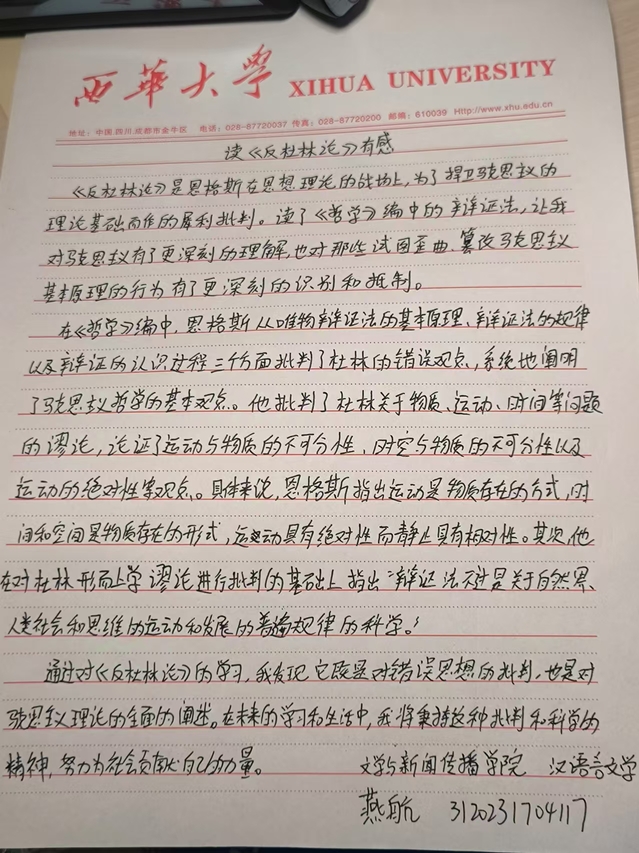 西華大学 XIHUA UNIVERSITY
地址：中国.四川.成都市金牛区 电话：028-87720037 传真：028-87720200 邮编：610039 Http://www.xhu.edu.cn
读《反杜林论》有感
《反杜林论》是恩格斯在思想理论的战场上，为了捍卫马克思主义的
理论基础而作的犀利批判。读了《哲学》编中的辩证法，让我
对马克思主义有了更深刻的理解，也对那些试图歪曲、篡改马克思主义
基本原理的行为有了更深刻的识别和抵制。
在《哲学》编中，恩格斯从唯物辩证法的基本原理、辩证法的规律
以及辩证的认识过程三个方面批判了杜林的错误观点，系统地阐明
了马克思主义哲学的基本观点。他批判了杜林关于物质、运动、时间等问题
的谬论，论证了运动与物质的不可分性，时空与物质的不可分性以及
运动的绝对性等观点。具体来说，恩格斯指出运动是物质存在的方式，时
间和空间是物质存在的形式，运动具有绝对性而静止具有相对性。其次，他
在对杜林形而上学谬论进行批判的基础上指出“辩证法不过是关于自然界、
人类社会和思维的运动和发展的普遍规律的科学。”
通过对《反杜林论》的学习，我发现它既是对错误思想的批判，也是对
马克思主义理论的全面的阐述。在未来的学习和生活中，我将秉持这种批判和科学的
精神，努力为社会贡献自己的力量。
文学与新闻传播学院 汉语言文学
燕航 3120231704117